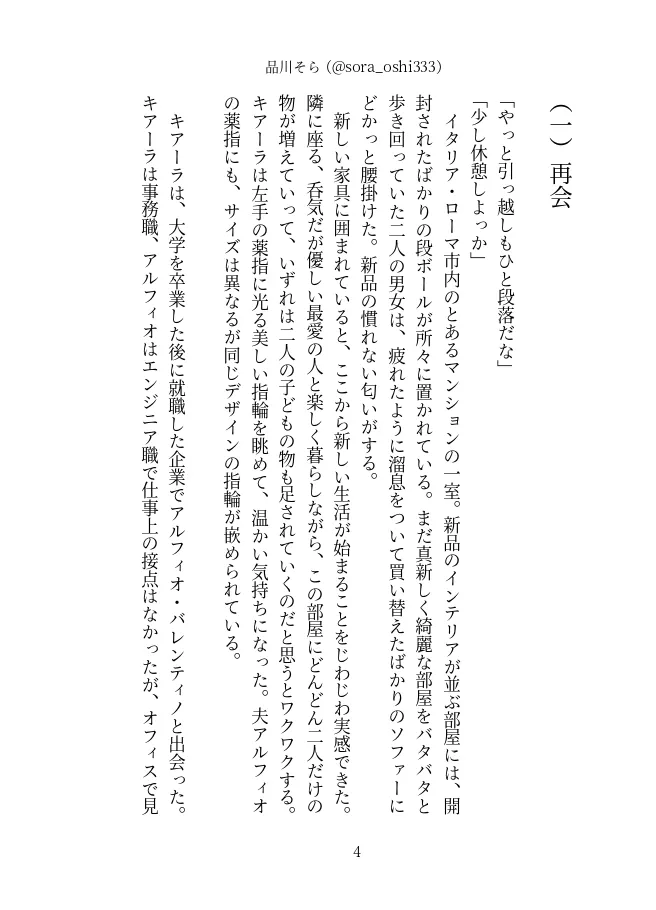 品川そら（@sora_oshi333）
（一）再会
「やっと引っ越しもひと段落だな」
「少し休憩しよっか」
イタリア・ローマ市内のとあるマンションの一室。新品のインテリアが並ぶ部屋には、開
封されたばかりの段ボールが所々に置かれている。まだ真新しく綺麗な部屋をバタバタと
歩き回っていた二人の男女は、疲れたように溜息をついて買い替えたばかりのソファーに
どかっと腰掛けた。新品の慣れない匂いがする。
新しい家具に囲まれていると、ここから新しい生活が始まることをじわじわ実感できた。
隣に座る、呑気だが優しい最愛の人と楽しく暮らしながら、この部屋にどんどん二人だけの
物が増えていって、いずれは二人の子どもの物も足されていくのだと思うとワクワクする。
キアーラは左手の薬指に光る美しい指輪を眺めて、温かい気持ちになった。夫アルフィオ
の薬指にも、サイズは異なるが同じデザインの指輪が嵌められている。
キアーラは、大学を卒業した後に就職した企業でアルフィオ・バレンティノと出会った。
キアーラは事務職、アルフィオはエンジニア職で仕事上の接点はなかったが、オフィスで見
4